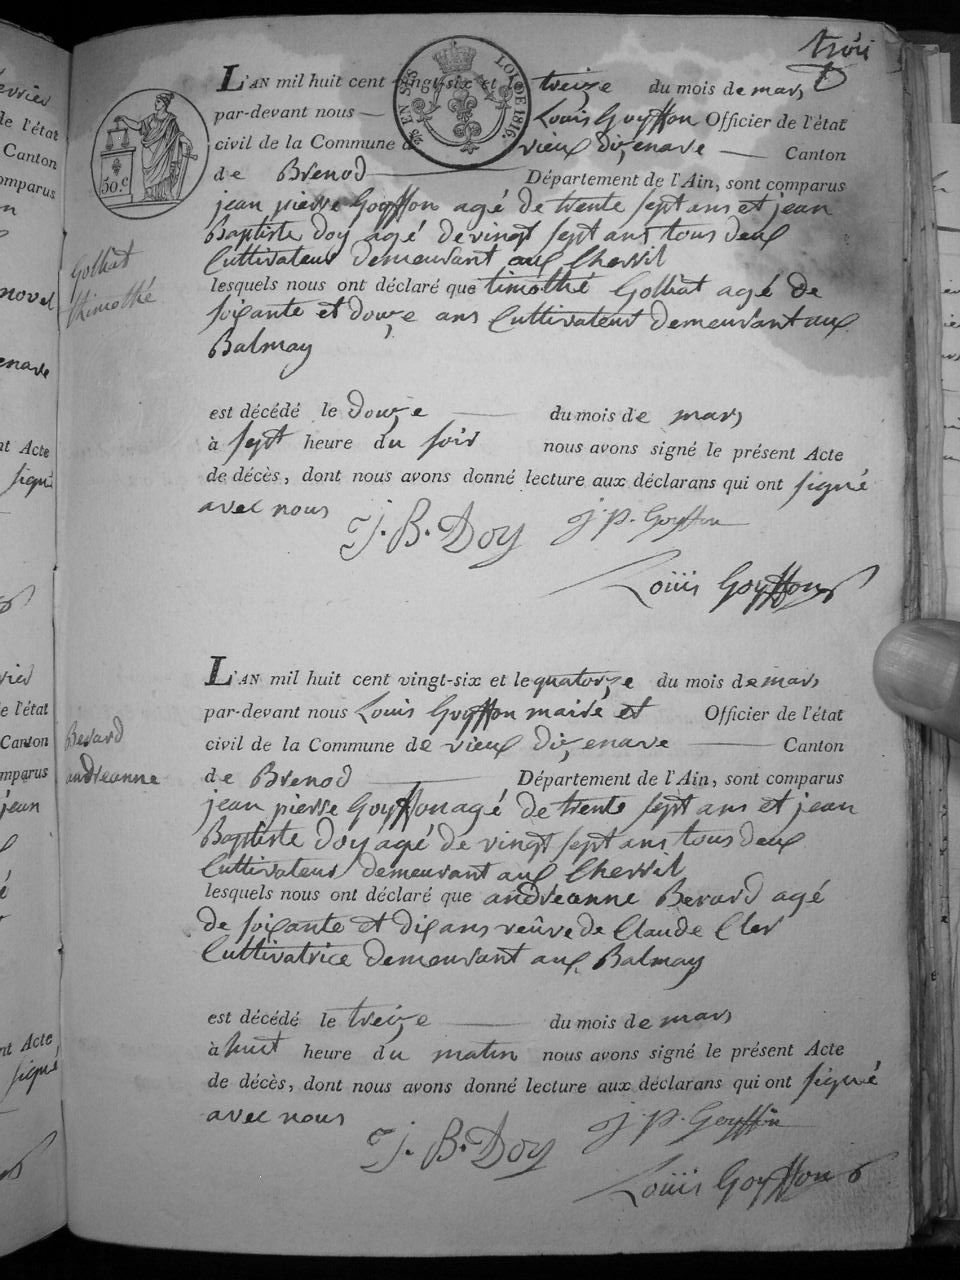 trois
L'AN mil huit cent vingt-six et le treize du mois de mars
par-devant nous Louis Goyffon Officier de l'état
civil de la Commune de vieux dizenave Canton
de Brenod Département de l'Ain, sont comparus
jean pierre Goyffon agé de trente sept ans et jean
Baptiste Doy agé de vingt sept ans tous deux
Cultivateur demeurant aux Cherril
lesquels nous ont déclaré que timothé Golliat agé de
soixante et douze ans Cultivateur demeurant aux
Balmay
est décédé le douze du mois de mars
à sept heure du soir nous avons signé le présent Acte
de décès, dont nous avons donné lecture aux déclarans qui ont signé
avec nous
J. B. Doy J P. Goyffon
Louis Goyffon
50 c
LOI DE 1816.
Golliat
thimothé
L'AN mil huit cent vingt-six et le quatorze du mois de mars
par-devant nous Louis Goyffon maire et Officier de l'état
civil de la Commune de vieux dizenave Canton
de Brenod Département de l'Ain, sont comparus
jean pierre Goyffon agé de trente sept ans et jean
Baptiste Doy agé de vingt sept ans tous deux
Cultivateur demeurant aux Cherril
lesquels nous ont déclaré que andréanne Berard agé
de soixante et dix ans veûve de Claude Cler
Cultivatrice demeurant aux Balmay
est décédé le treize du mois de mars
à huit heure du matin nous avons signé le présent Acte
de décès, dont nous avons donné lecture aux déclarans qui ont signé
avec nous
J. B. Doy J P. Goyffon
Louis Goyffon
Berard
andréanne